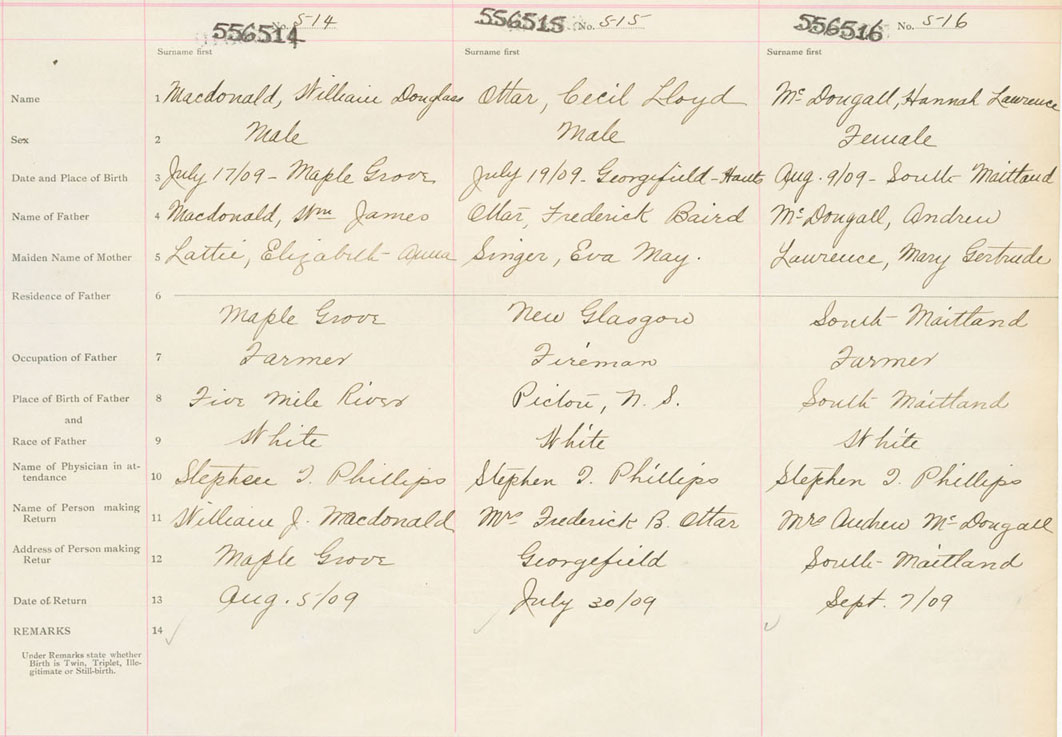 556514 No. 514 556515 No. 515 556516 No. 516
Surname first Surname first Surname first
Name 1 Macdonald, William Douglass Ottar, Cecil Lloyd McDougall, Hannah Lawrence
Sex 2 Male Male Female
Date and Place of Birth 3 July 17/09 - Maple Grove July 19/09 - Georgefield - Hants Aug. 9/09 - South Maitland
Name of Father 4 Macdonald, Wm James Ottar, Frederick Baird McDougall, Andrew
Maiden Name of Mother 5 Lattie, Elizabeth Anna Singer, Eva May. Lawrence, Mary Gertrude
Residence of Father 6
Maple Grove New Glasgow South Maitland
Occupation of Father 7 Farmer Fireman Farmer
Place of Birth of Father 8 Five Mile River Pictou, N. S. South Maitland
and
Race of Father 9 White White White
Name of Physician in at-
tendance 10 Stephen T. Phillips Stephen T. Phillips Stephen T. Phillips
Name of Person making
Return 11 William J. Macdonald Mrs Frederick B. Ottar Mrs Andrew McDougall
Address of Person making
Retur 12 Maple Grove Georgefield South Maitland
Date of Return 13 Aug. 5/09 July 30/09 Sept. 7/09
REMARKS 14
Under Remarks state whether
Birth is Twin, Triplet, Ille-
gitimate or Still-birth.